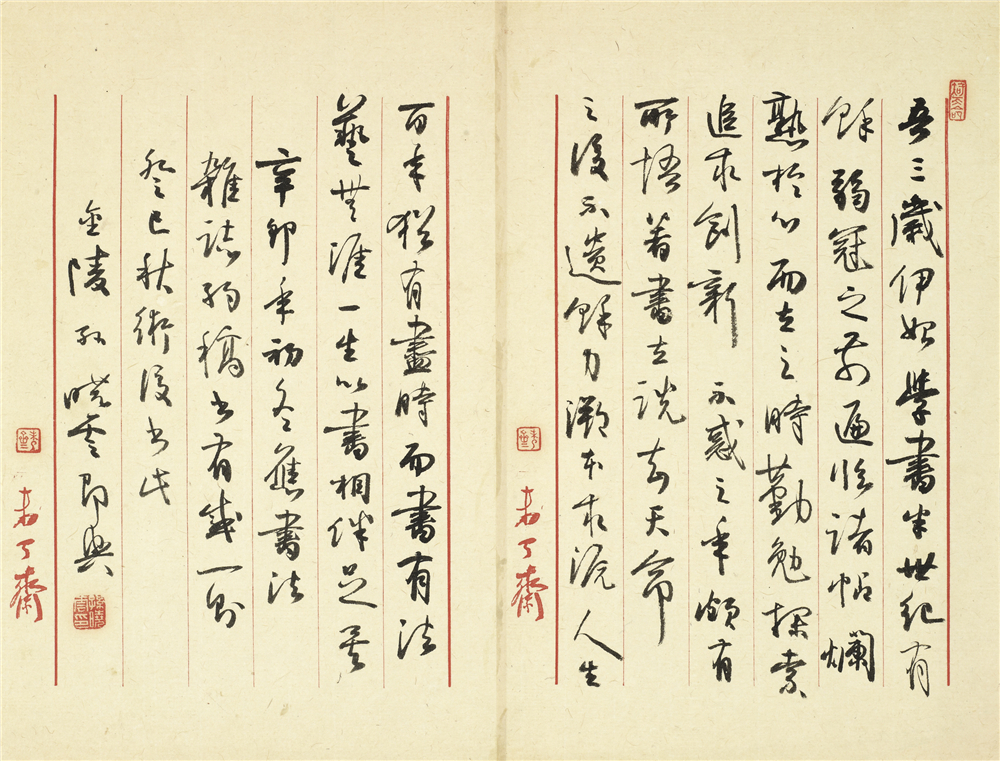 吾三歲伊始學書半世紀有
餘弱冠之前遍臨諸帖爛
熟於心而立之時勤勉探索
追求創新不惑之年頗有
所悟著書立說知天命
之後不遺餘力溯本求源人生
百年猶有盡時而書有法
藝無涯一生以書相伴足矣
辛卯年初冬應書法
雜誌約稿書有感一則
癸巳秋術後書此
金陵孫曉雲即興
未了齋
未了齋